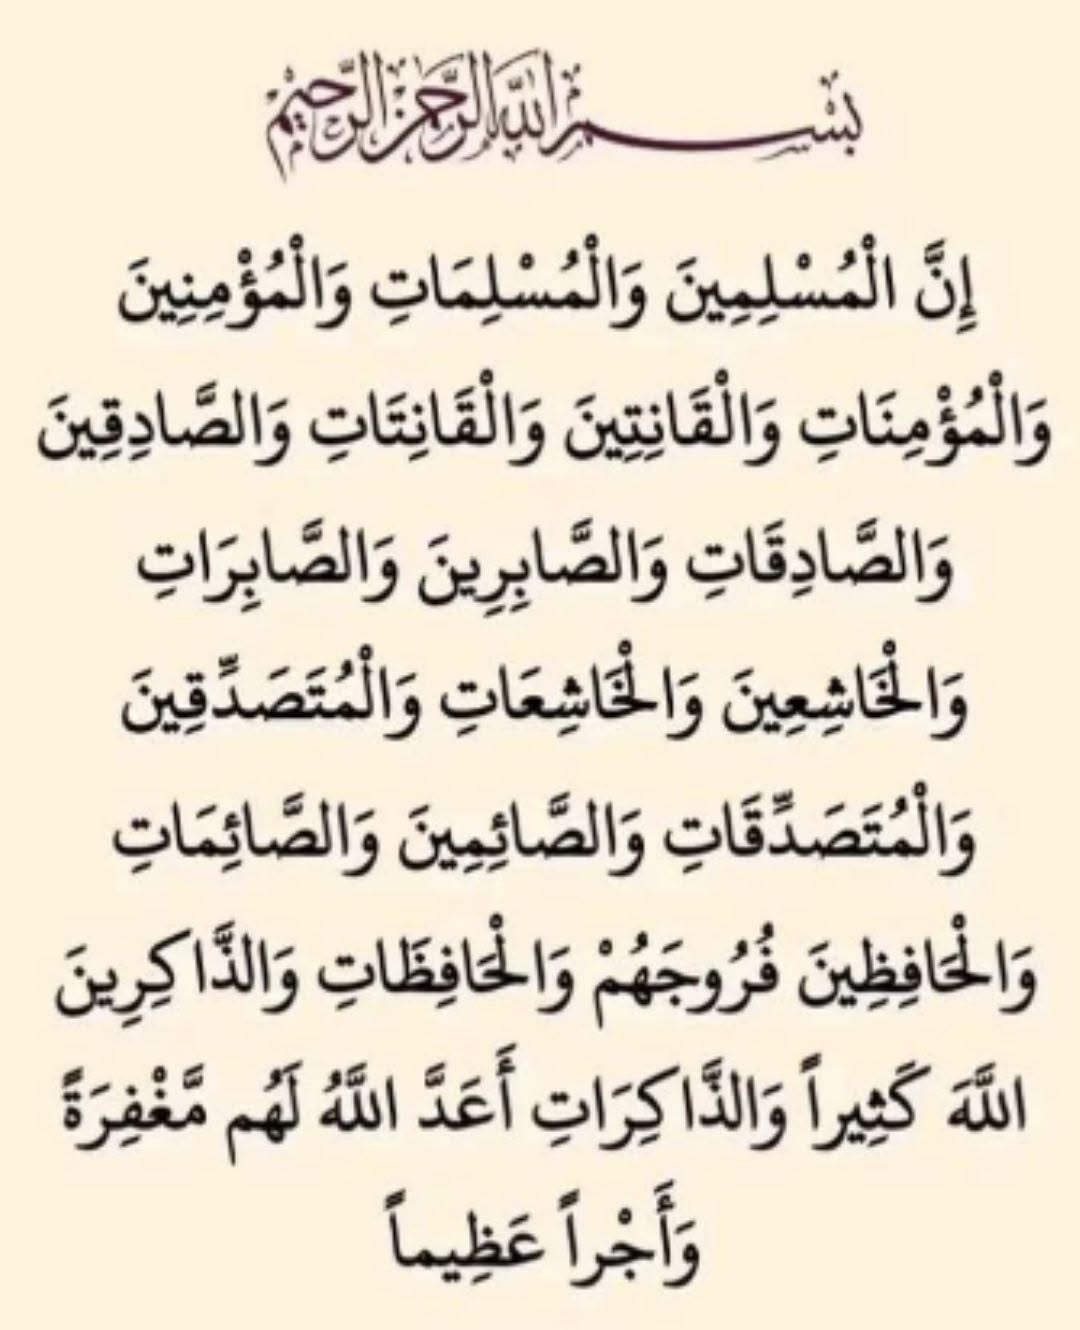 بسم الله الرحمن الرحيم
إِنَّ الْمُسْلِمِينَ وَالْمُسْلِمَاتِ وَالْمُؤْمِنِينَ
وَالْمُؤْمِنَاتِ وَالْقَانِتِينَ وَالْقَانِتَاتِ وَالصَّادِقِينَ
وَالصَّادِقَاتِ وَالصَّابِرِينَ وَالصَّابِرَاتِ
وَالْخَاشِعِينَ وَالْخَاشِعَاتِ وَالْمُتَصَدِّقِينَ
وَالْمُتَصَدِّقَاتِ وَالصَّائِمِينَ وَالصَّائِمَاتِ
وَالْحَافِظِينَ فُرُوجَهُمْ وَالْحَافِظَاتِ وَالذَّاكِرِينَ
اللَّهَ كَثِيراً وَالذَّاكِرَاتِ أَعَدَّ اللَّهُ لَهُم مَّغْفِرَةً
وَأَجْراً عَظِيماً